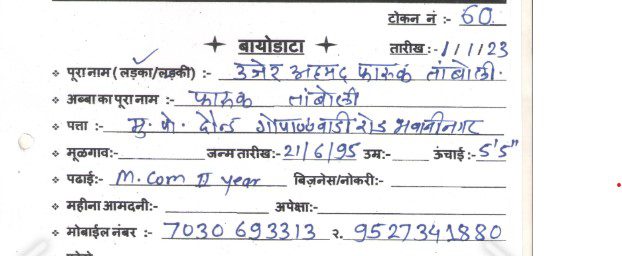 टोकन नं :- 60.
बायोडाटा
तारीख :- 1/1/23
पूरा नाम ( लड़का/लड़की) :- उजेर अहमद फारुक तांबोली.
अब्बा का पूरा नाम :- फारुक तांबोली
पता :- मु. पो. दौन्ड गोपाळवाडी रोड भवानीनगर
मूळगाव:- जन्म तारीख:- 21/6/95 उम्र:- ऊंचाई :- 5'5"
पढाई:- M. Com II year बिज़नेस/नोकरी:-
महीना आमदनी:- अपेक्षा:-
मोबाईल नंबर :- 7030 693313 २. 9527341880